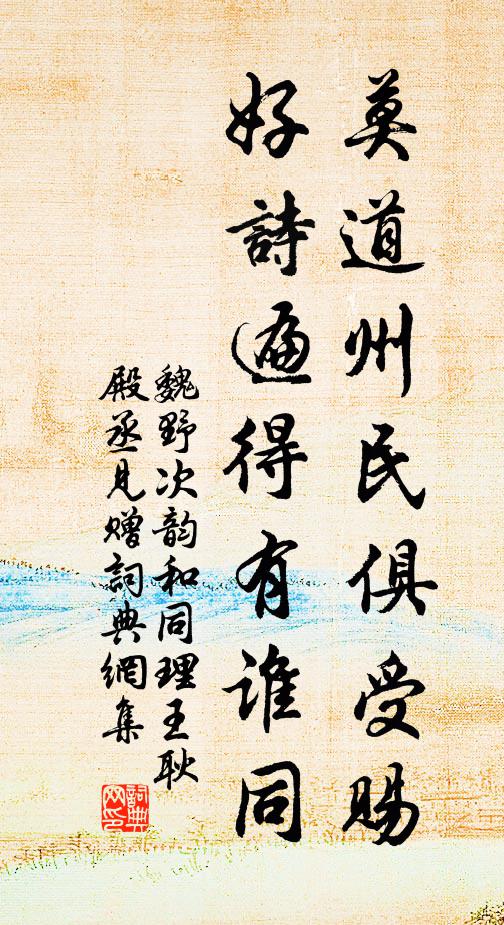 莫道州民俱受賜
好詩遍得有誰同
魏野次韵和同理王耿
殿丞見贈詞典網集
詞典网印